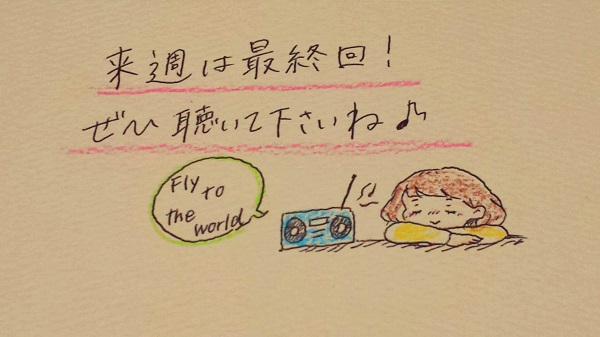 来週は最終回!
ぜひ聴いて下さいね♪
Fly to
the world